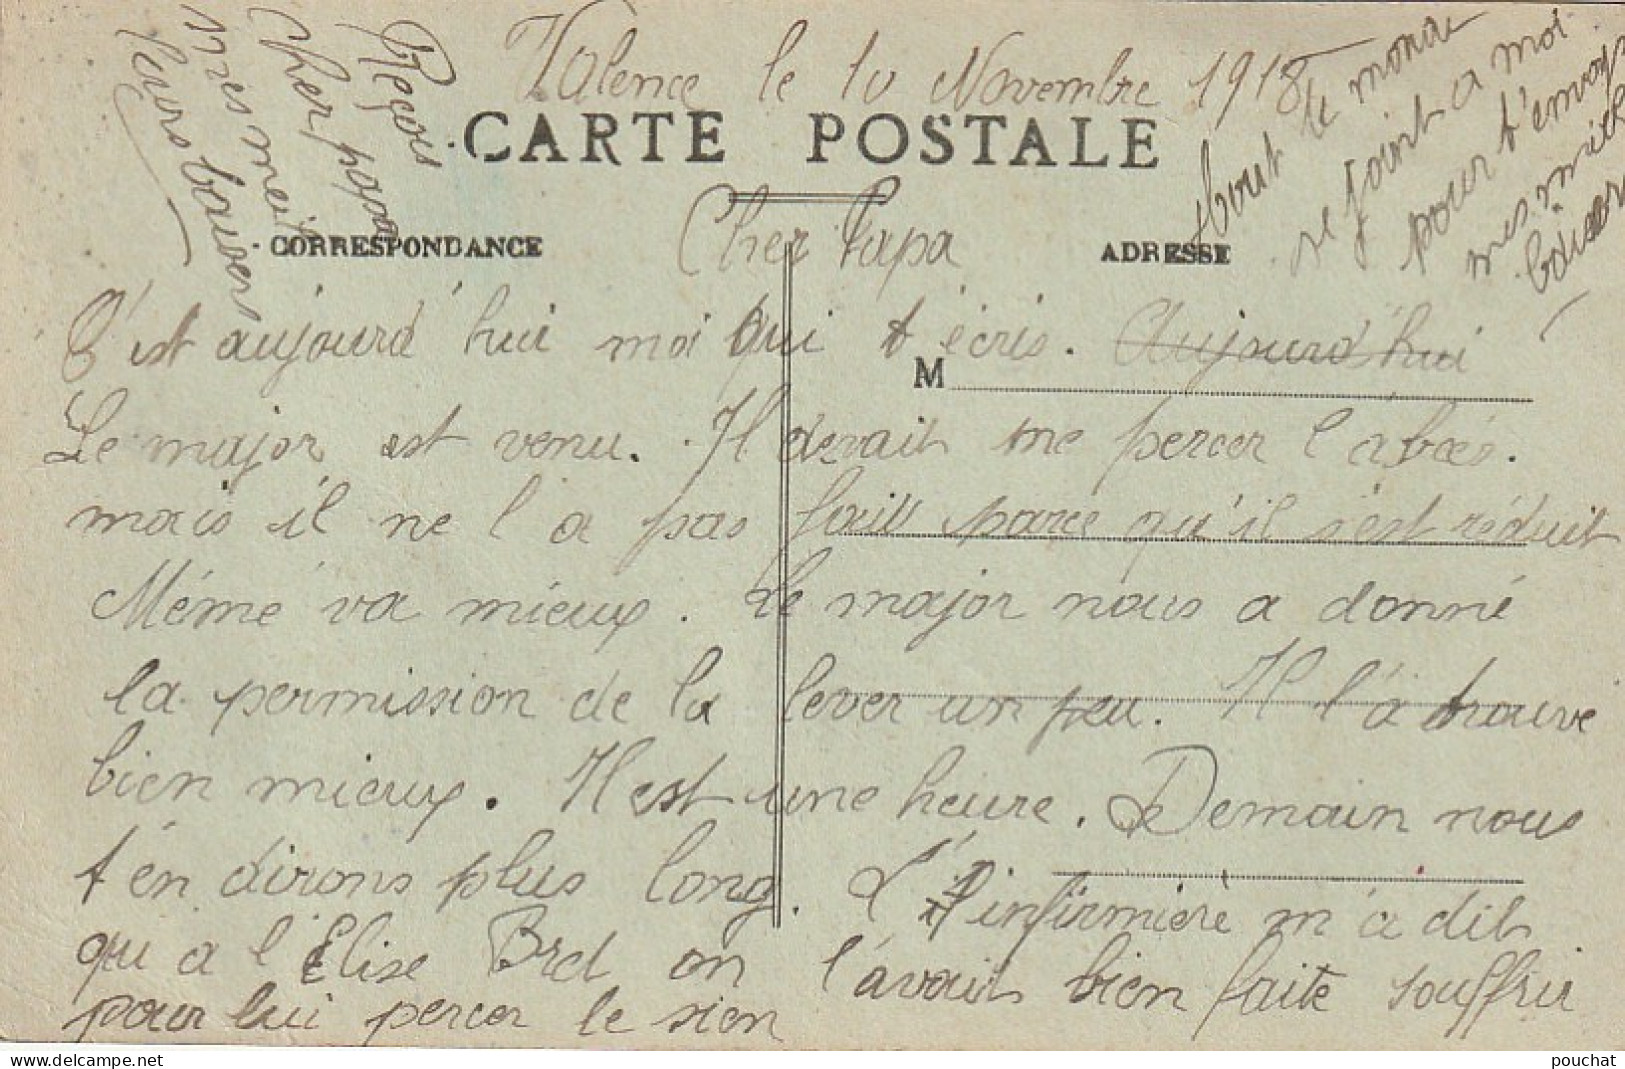 Valence le 10 Novembre 1918
CARTE POSTALE
Cher Papa
CORRESPONDANCE
ADRESSE
C'est aujourd'hui moi qui t'écris. Aujourd'hui
M
Le major est venu. Il devait me percer l'abcés.
mais il ne l'a pas fait parce qu'il s'est réduit
Mémé va mieux. Le major nous a donné
la permission de la lever un peu. Il l'a trouvé
bien mieux. Il est une heure. Demain nous
t'en dirons plus long. L'infirmière m'a dit
qu'a l'Elise Bret on l'avait bien faite souffrir
pour lui percer le sien
Reçois
Cher papa
mes meil
leurs baisers
tout le monde
se joint a moi
pour t'envoyer
mes mille
baisers
www.delcampe.net
pouchat